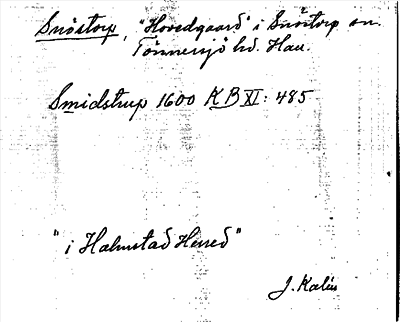 Snöstorp, "Hovedgaard" i Snöstorp sn.
Tönnersjö hd. Hall.
Smidstrup 1600 KB XI: 485
"i Halmstad Herred"
J. Kalén